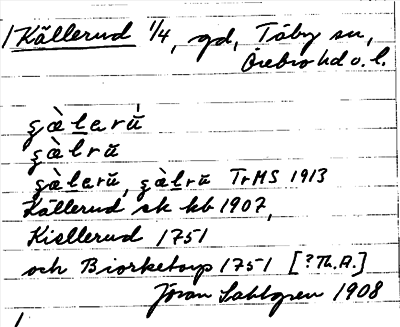 1 Källerud 1/4, gd, Täby sn,
Örebro hd o. l.
gàlerú
gàlrŭ
gàlerŭ, gàlrŭ TrMS 1913
Källerud sk kb 1907,
Kiellerud 1751
och Biorketorp 1751 [?Th.A.]
Jöran Sahlgren 1908
1